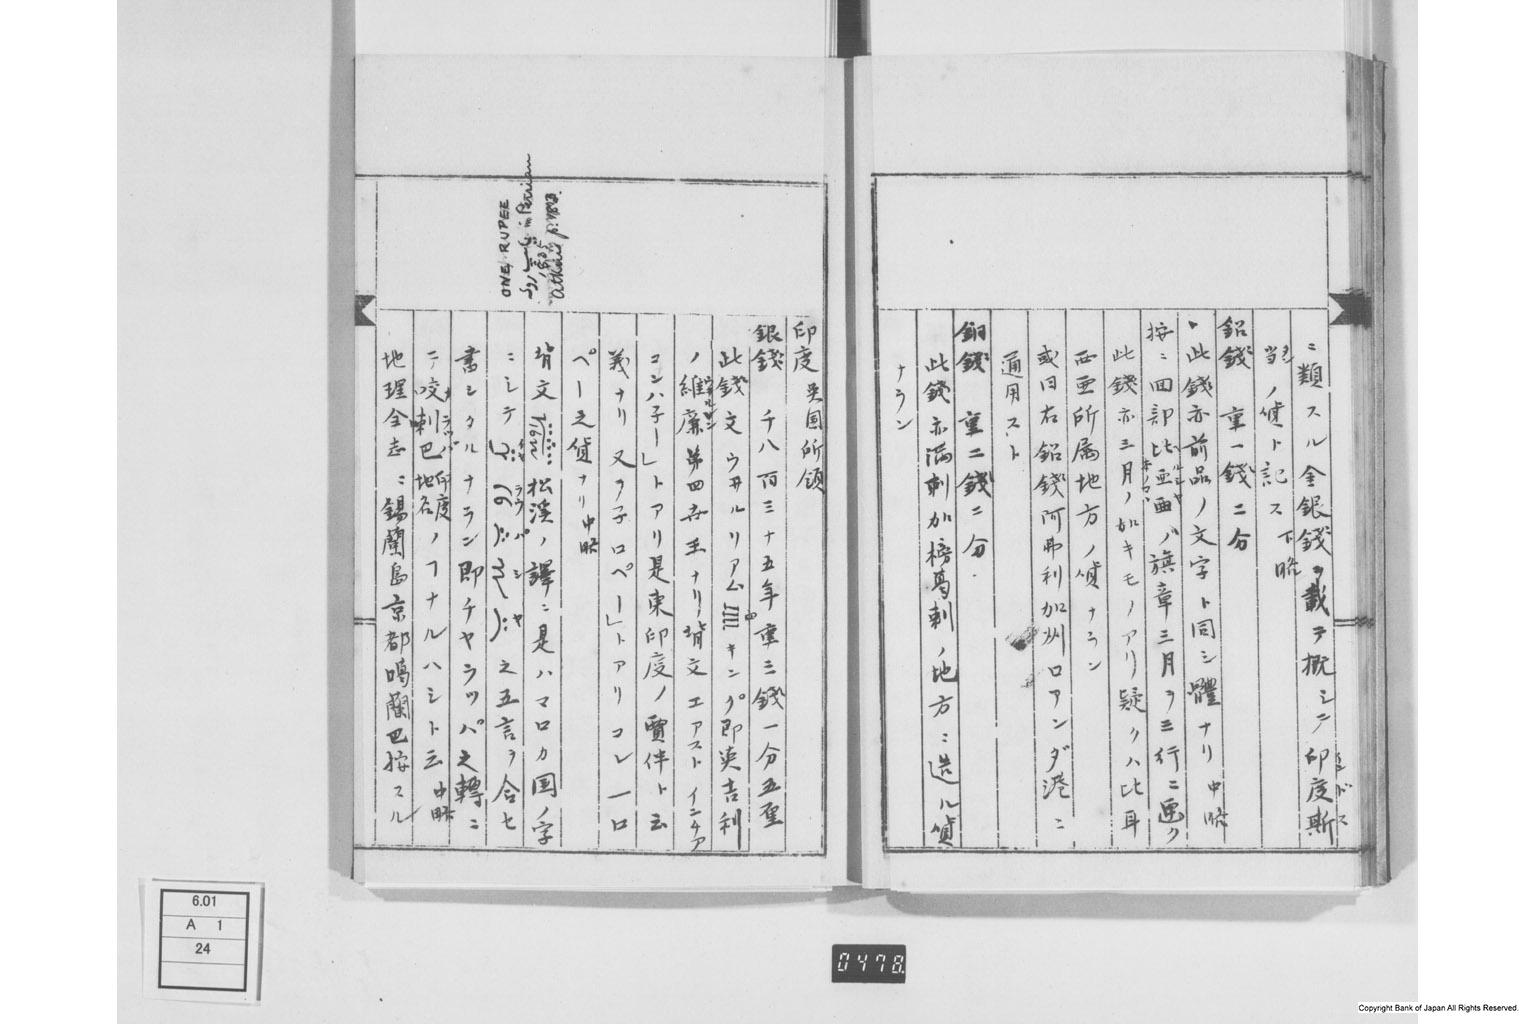 ニ類スル金銀錢ヲ載テ概シテ印度斯
當ノ貨ト記ス 下略
鉛錢 重一錢二分
此錢亦前品ノ文字ト同シ體ナリ 中略
按ニ回部比亜西ハ旗章三月ヲ三行ニ画ク
此錢亦三月ノ如キモノアリ疑クハ比耳
西亜所属地方ノ貨ナラン
或曰右鉛錢阿弗利加州ロアンダ港ニ
通用スト
銅錢 重二錢二分
此錢亦満剌加榜葛剌ノ地方ニ造ル貨
ナラン
印度 英国所領
銀錢 千八百三十五年重三錢一分五厘
此錢文ウヰルリアム IIII キング即英吉利
ノ維廉第四世王ナリ背文エアスト インヂア
コンハ子ー」トアリ是東印度ノ賈伴ト云
義ナリ又ヲ子ロペー」トアリコレ一ロ
ペー之貨ナリ 中略
背文 松溪ノ譯ニ是ハマロカ国ノ字
ニシテ 之五言ヲ合セ
書シタルナラン即チヤラッパ之轉ニ
テ咬𠺕巴 印度地名 ノヿナルハシト云 中略
地理全志ニ錫蘭島京都鳴蘭巴按スル
ONE RUPEE
in Persian
1835
Atkins p.
6.01
A 1
24
0478.
Copyright Bank of Japan All Rights Reserved.